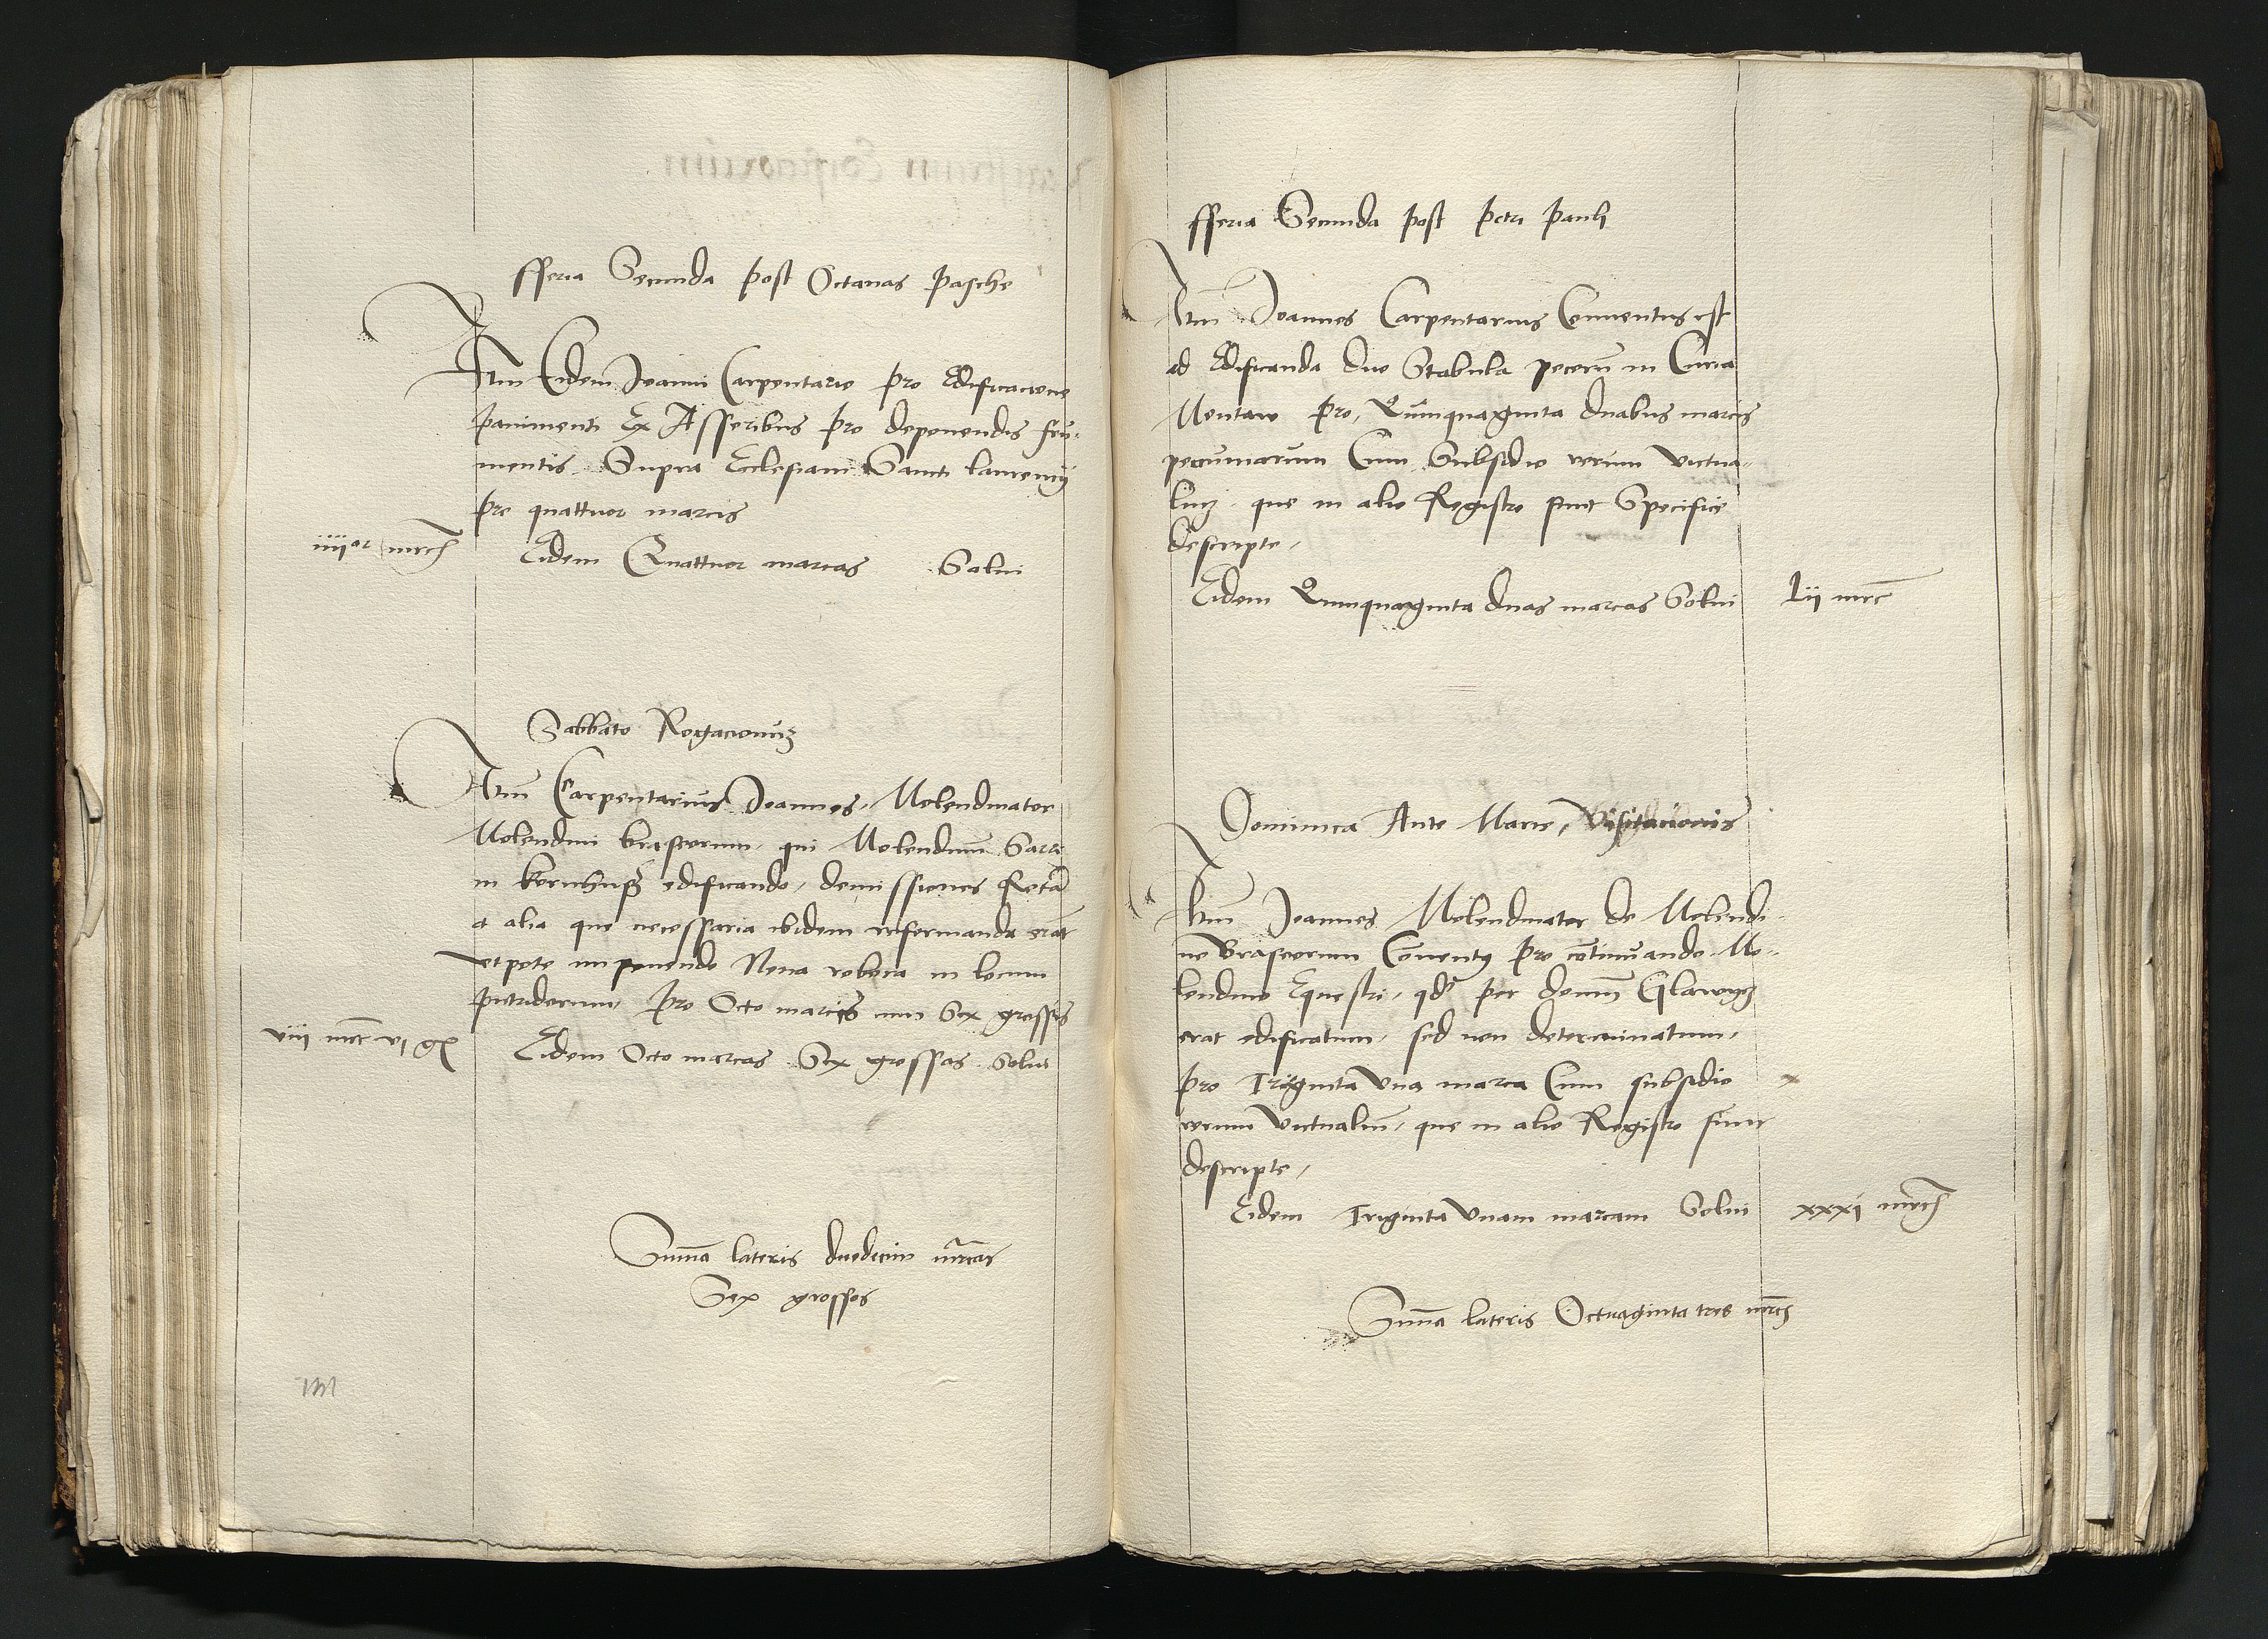 fferia Secunda post Octauas pasche
Itm Eidem Joanni Carpentario pro Edificacione
pauimenti Ex Asseribus pro deponendis fru-
mentis Supra Ecclesiam Sancti laurencij
pro quattuor marcis
iiiior mrc Eidem Quattuor marcas Solui
Sabbato Rogacionuz
Itm Carpentarius Joannes Molendinator
Molendini braseorum qui Molendinum Sarre
in edificando demissiones Rota
a alia que necessaria ibidem reformanda erat
vtpote imponendo Noua robora in locum
putridorum pro Octo marcis cum Sex grossis
viii mrc vi gr Eidem Octo marcas Sex grossos Solui
Suma lateris duodecim mrcas
Sex grossos
fferia Secunda post petri pauli
Itm Joannes Carpentarius Conuentus est
ad Edificanda duo Stabula pecoru in Curia
pro Quinquaginta duabus marcis
pecuniarum Cum Subsidio rerum victua-
liuz que in alio Registro sunt Specifice
descripte
Eidem Quinquaginta duas marcas Solui Lii mrc
Dominica Ante Marie Visitacionis
Itm Joannes Molendinator de Molendi-
no braseorum Conuentus pro continuando Mo-
lendino Equestri qd per domu
erat edificatum sed non determinatum
pro Triginta vna marca Cum subsidio
rerum victualiu que in alio Registro sunt
descripte
Eidem Triginta vnam marcam Solui xxxi mrc
Suma lateris Octuaginta tres mrc